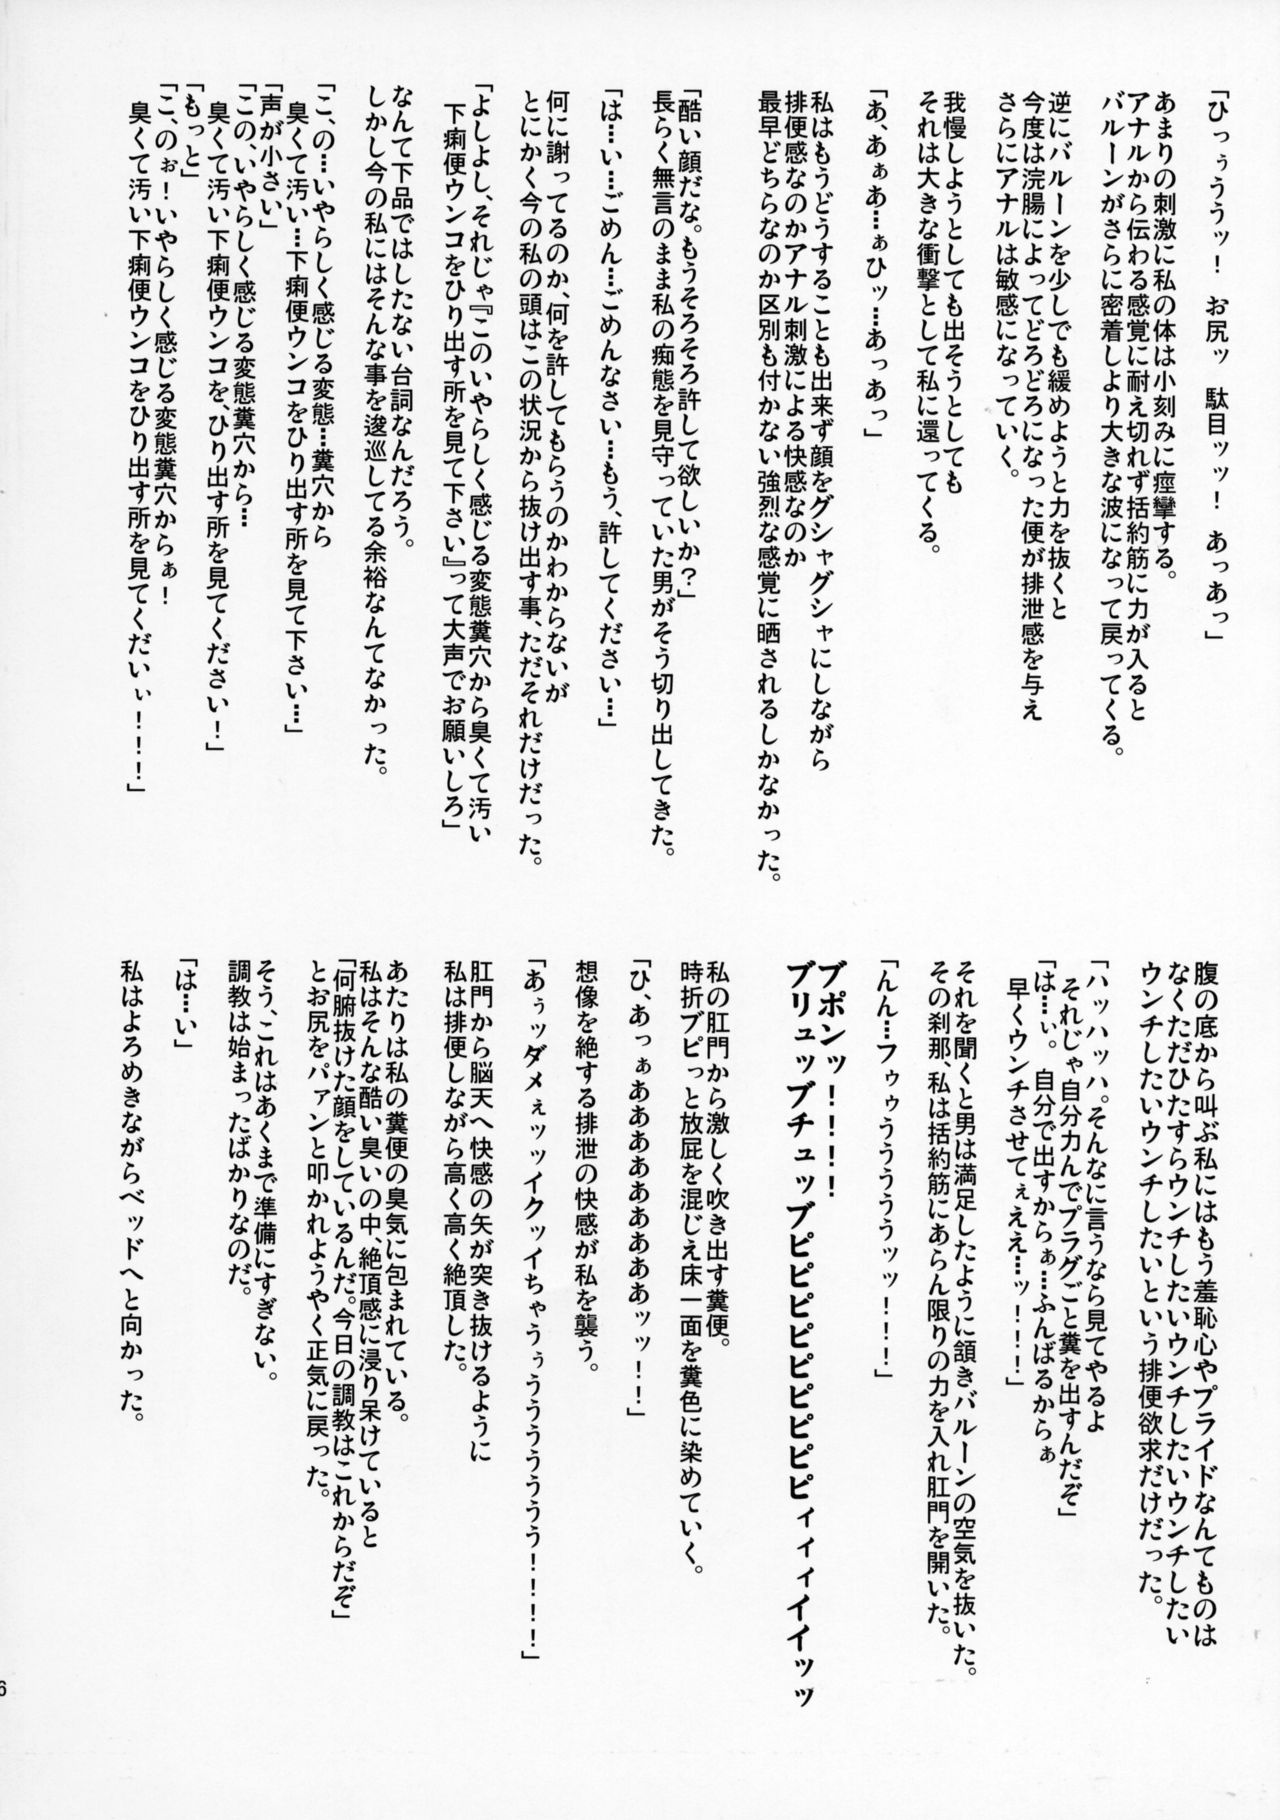 「ひっぅううッ！　お尻ッ　駄目ッッ！　あっあっ」
あまりの刺激に私の体は小刻みに痙攣する。
アナルから伝わる感覚に耐え切れず括約筋に力が入ると
バルーンがさらに密着しより大きな波になって戻ってくる。
逆にバルーンを少しでも緩めようと力を抜くと
今度は浣腸によってどろどろになった便が排泄感を与え
さらにアナルは敏感になっていく。
我慢しようとしても出そうとしても
それは大きな衝撃として私に還ってくる。
「あ、あぁあ…ぁひッ…あっあっ」
私はもうどうすることも出来ず顔をグシャグシャにしながら
排便感なのかアナル刺激による快感なのか
最早どちらなのか区別も付かない強烈な感覚に晒されるしかなかった。
「酷い顔だな。もうそろそろ許して欲しいか？」
長らく無言のまま私の痴態を見守っていた男がそう切り出してきた。
「は…い…ごめん…ごめんなさい…もう、許してください…」
何に謝ってるのか、何を許してもらうのかわからないが
とにかく今の私の頭はこの状況から抜け出す事、ただそれだけだった。
「よしよし、それじゃ『このいやらしく感じる変態糞穴から臭くて汚い
下痢便ウンコをひり出す所を見て下さい』って大声でお願いしろ」
なんて下品ではしたない台詞なんだろう。
しかし今の私にはそんな事を逡巡してる余裕なんてなかった。
「こ、の…いやらしく感じる変態…糞穴から
臭くて汚い…下痢便ウンコをひり出す所を見て下さい…」
「声が小さい」
「この、いやらしく感じる変態糞穴から…
臭くて汚い下痢便ウンコを、ひり出す所を見てください！」
「もっと」
「こ、のぉ！いやらしく感じる変態糞穴からぁ！
臭くて汚い下痢便ウンコをひり出す所を見てくだいぃ！！！」
腹の底から叫ぶ私にはもう羞恥心やプライドなんてものは
なくただひたすらウンチしたいウンチしたいウンチしたい
ウンチしたいウンチしたいという排便欲求だけだった。
「ハッハッハ。そんなに言うなら見てやるよ
それじゃ自分力んでプラグごと糞を出すんだぞ」
「は…ぃ。自分で出すからぁ…ふんばるからぁ
早くウンチさせてぇええ…ッ！！！」
それを聞くと男は満足したように頷きバルーンの空気を抜いた。
その刹那、私は括約筋にあらん限りの力を入れ肛門を開いた。
「んん…フゥゥううううッッ！！！」
ブポンッ！！！！！
ブリュッッブチュッッブピピピピピピピピピピィィィイイッッ
私の肛門から激しく吹き出す糞便。
時折ブピっと放屁を混じえ床一面を糞色に染めていく。
「ひ、あっぁああああああああッッ！！」
想像を絶する排泄の快感が私を襲う。
「あぅッダメぇッッイクッイちゃうぅうううううう！！！！」
肛門から脳天へ快感の矢が突き抜けるように
私は排便しながら高く高く絶頂した。
あたりは私の糞便の臭気に包まれている。
私はそんな酷い臭いの中、絶頂感に浸り呆けていると
「何腑抜けた顔をしているんだ。今日の調教はこれからだぞ」
とお尻をパァンと叩かれようやく正気に戻った。
そう、これはあくまで準備にすぎない。
調教は始まったばかりなのだ。
「は…い」
私はよろめきながらベッドへと向かった。
6